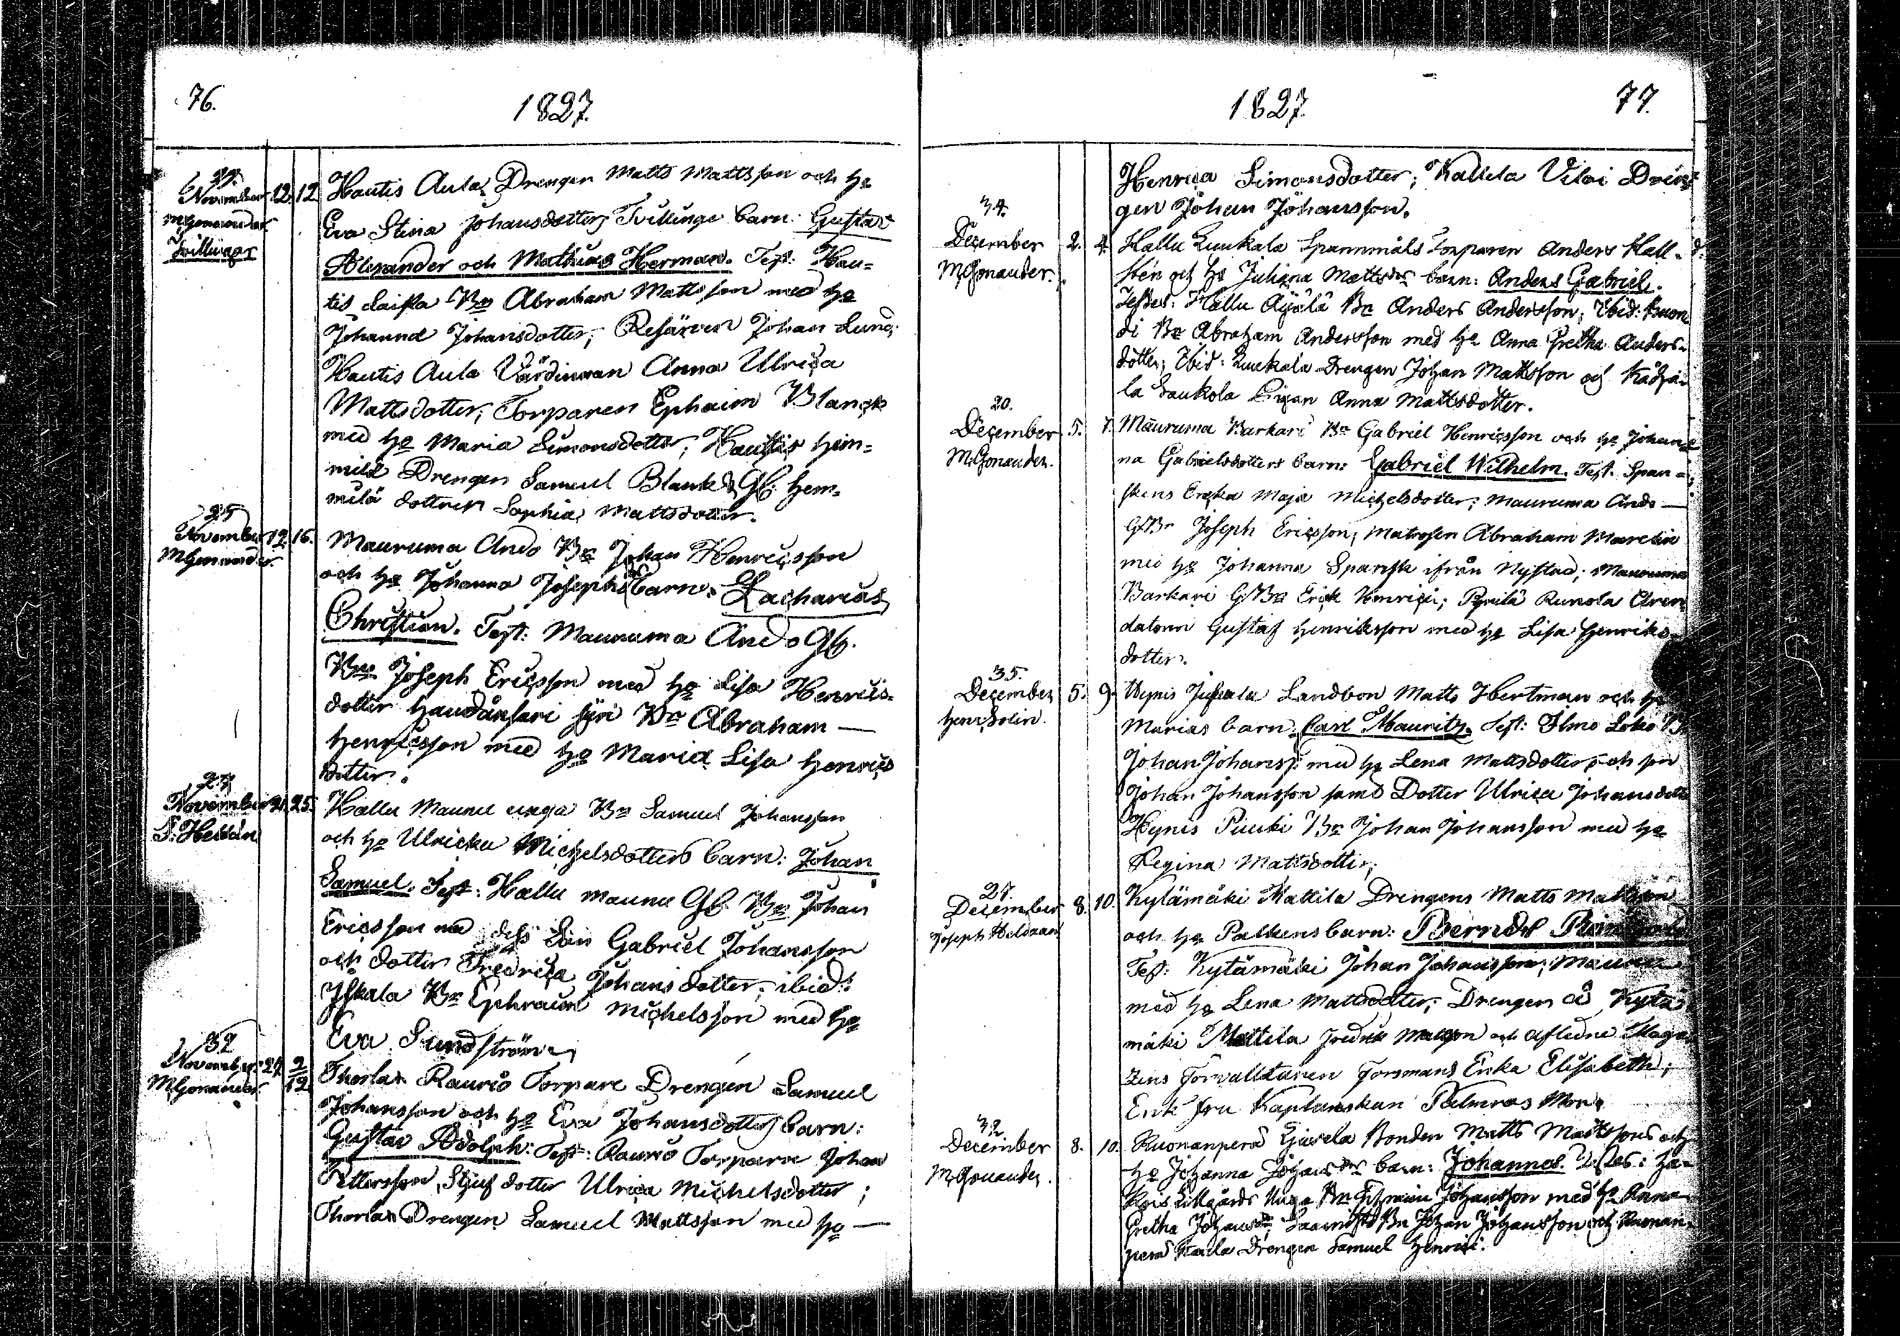 76.
1827.
39.
November 12. 12
MGonander.
Tvillingar
Hautis Aula Drengen Matts Mattsson och hs
Eva Stina Johansdotters Tvillinge barn: Gustaf
Alexander och Mathias Herman. Test: Hau=
tis Laista Bn Abraham Mattsson med hs
Johanna Johansdotter; Refärven Johan Lund;
Hautis Aula Värdinnan Anna Ulrica
Mattsdotter; Torparen Ephraim Blanck
med hs Maria Simonsdotter; Hautis Hem=
milä Drengen Samuel Blanck & Gb: Hem=
milä dottren Sophia Mattsdotter.
25
November 12. 16.
MGonander.
Mauruma Ando Bn Johan Henricsson
och hs Johanna Josephsdrs barn: Zacharias
Christian. Test: Mauruma Ando Gb.
Bn Joseph Ericsson med hs Lisa Henrics=
dotter Haudånsuri syri Bn Abraham —
Henricsson med hs Maria Lisa Henrics
dotter.
27
November 21. 25.
J. Heldán
Kallu Maunu unga Bn Samuel Johansson
och hs Ulricka Michelsdotters barn: Johan
Samuel. Test: Kallu Maunu Gb. Bn Johan
Ericsson med dess Son Gabriel Johansson
och dotter Fredrica Johansdotter; ibid:
Iskala Bn Ephraim Michelsson med hs
Eva Sundström.
32
November 27. 2/12
MGonander.
Thorlax Raurio Torpare Drengen Samuel
Johansson och hs Eva Johansdotters barn:
Gustav Adolph: Test: Raurio Torparn Johan
Pettersson, Stjuf dotter Ulrica Michelsdotter;
Thorlax Drengen Samuel Mattsson med hs —
1827.
77.
Henrica Simonsdotter; Kallela Vilai Drän=
gen Johan Johansson.
34.
December 2. 4.
MGonander.
Kallu Kuukala Spannmåls Torparen Anders Hall=
stén och hs Juliana Mattsdrs barn: Anders Gabriel.
Testes: Kallu Äijälä Bn Anders Andersson; Ibid: Kuon
di Bn Abraham Andersson med hs Anna Gretha Anders=
dotter; Ibid: Kuukala Drengen Johan Mattsson och Kadja=
la Saukola Pigan Anna Mattsdotter.
20.
December 5. 7.
MGonander.
Mauruma Barkari Bn Gabriel Henricsson och hs Johan=
na Gabrielsdotters barn: Gabriel Wilhelm. Test: Span=
skens Enka Maja Michelsdotter; Mauruma Ando —
GBn Joseph Ericsson; Matrosen Abraham Marelin
med hs Johanna Spansk ifrån Nystad; Mauruma
Barkari GBn Erick Henrici; Pyrilä Runola Aren
datorn Gustaf Henriksson med hs Lisa Henriks=
dotter.
35.
December 5. 9.
Henr. Solin.
Hynis Jussala Landbon Matts Hertman och hs
Marias barn: Carl Mauritz. Test: Elmo Loko B
Johan Johanss: med hs Lena Mattsdotter och son
Johan Johansson samt Dotter Ulrica Johansdott
Hynis Puuki Bn Johan Johansson med hs
Regina Mattsdotter;
27.
December 8. 10.
Joseph Heldaan
Kylämäki Mattila Drengens Matts Mattsson
och hs Palkens barn: Berndt
Test: Kytämäki Johan Johansson;
med hs Lena Mattsdotter; Drengen å Kytä
mäki Mattila Fredrik Matsson och Aflidne Maga
zins Förvalltaren Forsmans Enka Elisabeth;
Enk fru Kaplanskan Palmroos Mor.
32
December 8. 10.
MGonander.
Ruonanperä Gisela Bonden Matts Mattssons och
hs Johanna Johansdrs barn: Johannes. Testes: Ha=
Unga Bn Ephraim Johansson med hs Anna
Gretha Johansdr; Bn Johan Johansson och Ruonan=
perä Drengen Samuel Henrici.